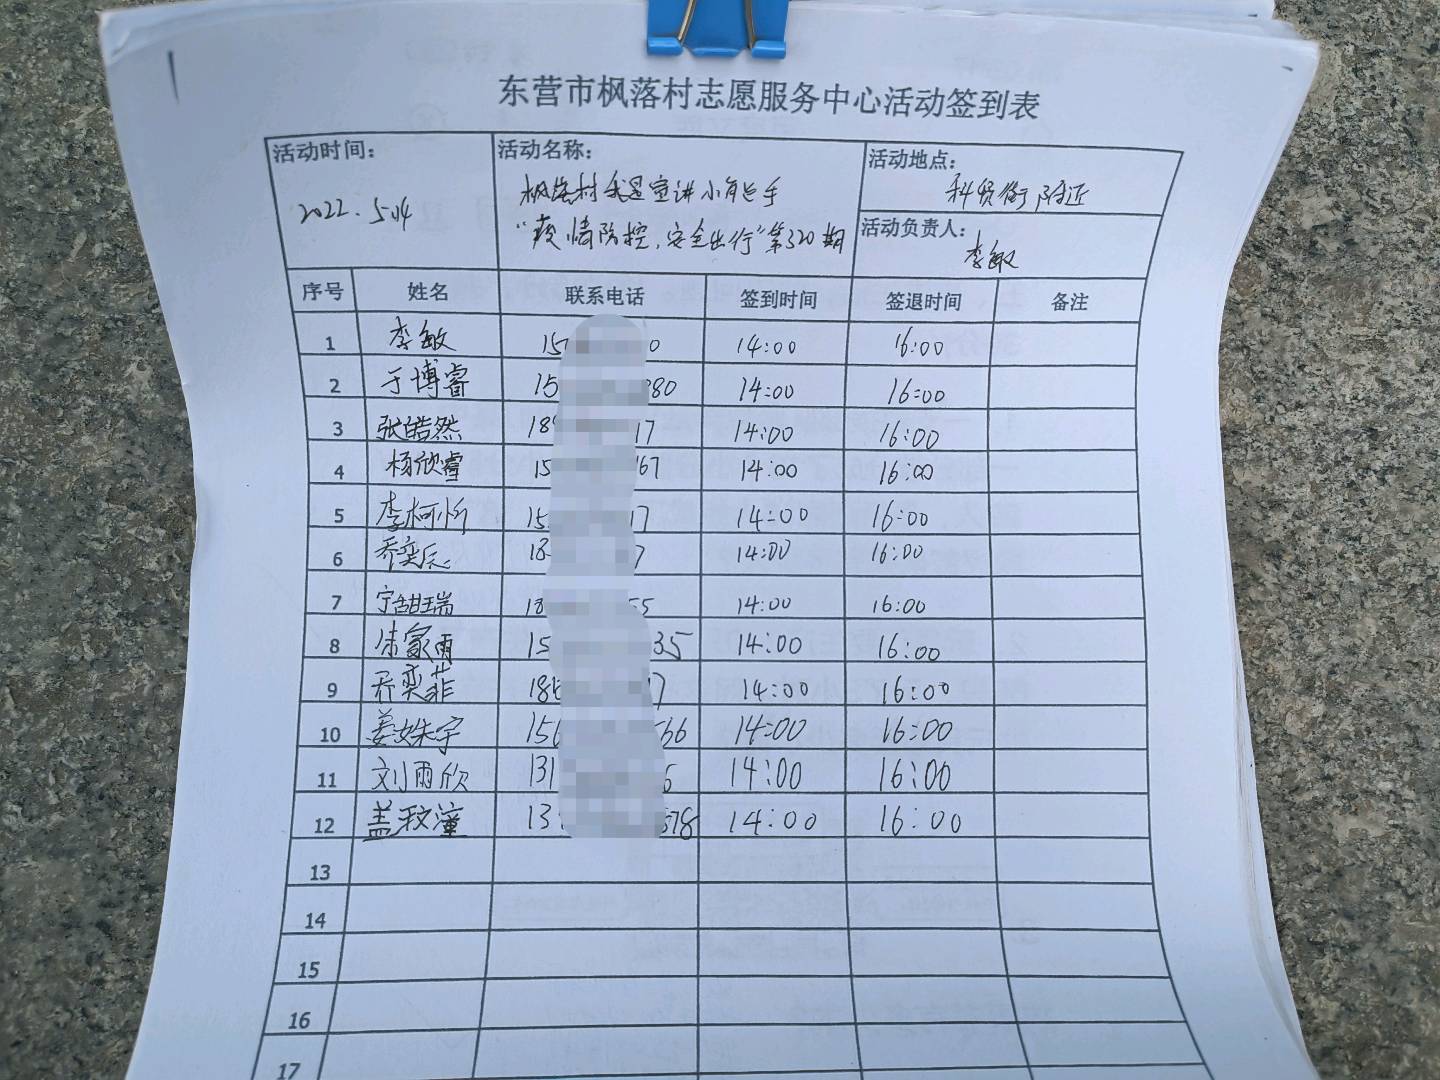 东营市枫落村志愿服务中心活动签到表
活动时间：
2022.5.14
活动名称：
枫落村我是宣讲小能手
“疫情防控，安全出行”第320期
活动地点：
科贸街附近
活动负责人：
李敏
序号 姓名 联系电话 签到时间 签退时间 备注
1 李敏 15 0 14:00 16:00
2 于博睿 15 80 14:00 16:00
3 张皓然 18 17 14:00 16:00
4 杨欣睿 15 67 14:00 16:00
5 李柯忻 15 17 14:00 16:00
6 乔奕辰 18 7 14:00 16:00
7 宁甜瑞 18 55 14:00 16:00
8 朱家雨 15 35 14:00 16:00
9 乔奕菲 186 7 14:00 16:00
10 姜姝宇 156 66 14:00 16:00
11 刘雨欣 131 6 14:00 16:00
12 盖玟潼 13 578 14:00 16:00
13
14
15
16
17